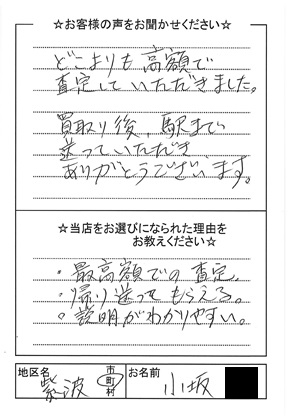 ☆お客様の声をお聞かせください☆
どこよりも高額で
査定していただきました。
買取り後、駅まで
送っていただき
ありがとうございます。
☆当店をお選びになられた理由を
お教えください☆
・最高額での査定。
・帰り送ってもらえる。
・説明がわかりやすい。
地区名 紫波 市町村 お名前 小坂